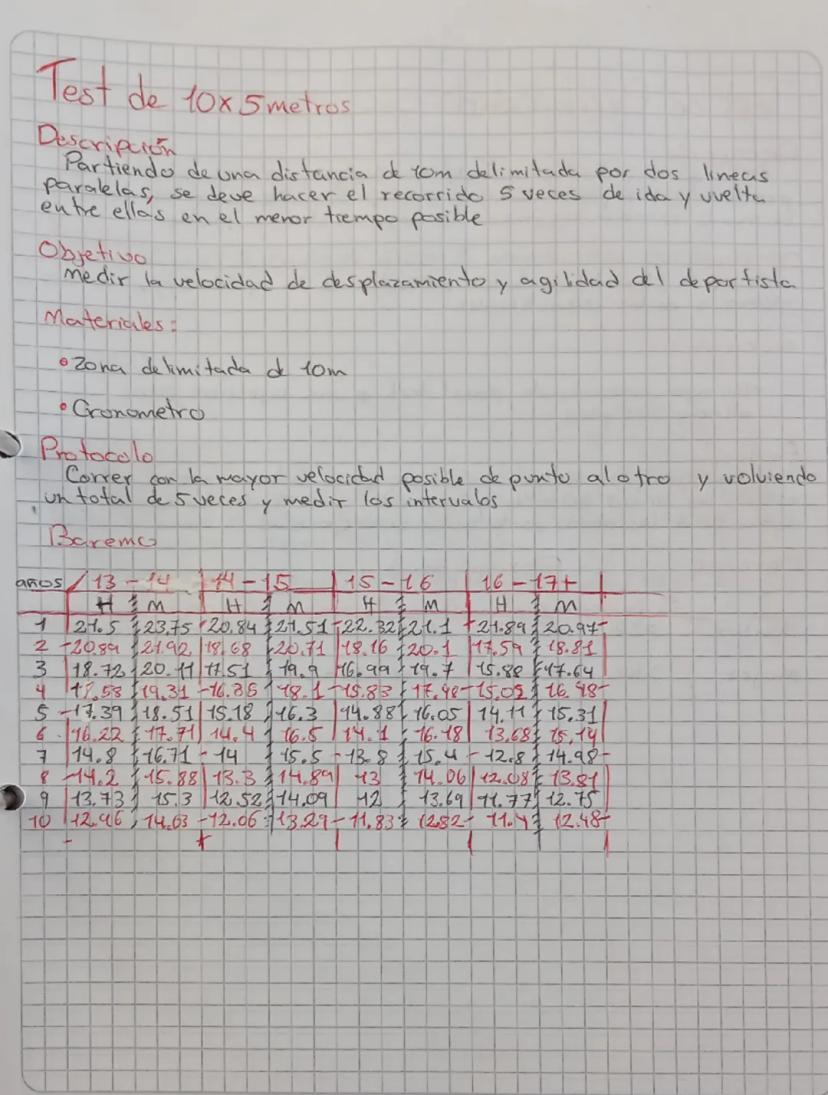 Test de 10x5metros
Descripción
Partiendo de una distancia d 10m delimitada por dos líneas
paralelas, se deve hacer el recorrido 5 veces de ida y vuelta
entre ellas en el menor tiempo posible
Objetivo
Medir la velocidad de desplazamiento y agilidad del deportista
Materiales:
• Zona delimitada d 10m
• Cronometro
Protocolo
Correr con la mayor velocidad posible de punto al otro y volviendo
un total de 5 veces y medir los intervalos
Baremo
años 13-14 14-15 15-16 16-17+
H M H M H M H M
1 21.5 23.75 20.84 21.51 22.32 21.1 21.89 20.97
2 20.89 21.92 18.68 20.71 18.16 20.1 17.59 18.81
3 18.72 20.11 17.51 19.9 16.99 19.7 15.88 17.64
4 17.58 19.31 16.35 18.1 15.83 17.48 15.02 16.48
5 17.39 18.51 15.18 16.3 14.88 16.05 14.11 15.31
6 16.22 17.71 14.4 16.5 14.1 16.18 13.68 15.14
7 14.8 16.71 14 15.5 13.8 15.4 12.8 14.98
8 14.2 15.88 13.3 14.89 13 14.06 12.08 13.81
9 13.73 15.3 12.52 14.09 12 13.69 11.77 12.75
10 12.96 14.63 12.06 13.29 11.83 12.82 11.4 12.48